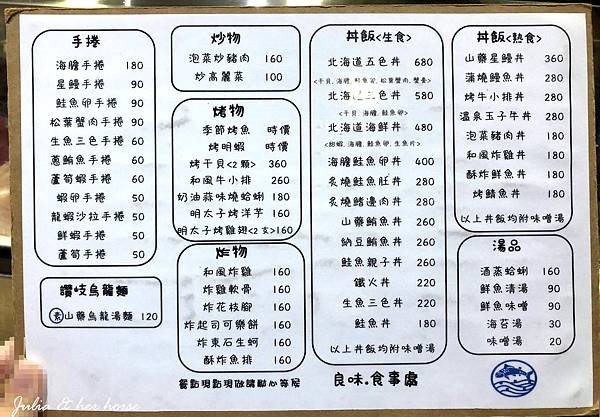 手捲
海膽手捲 180
星鰻手捲 90
鮭魚卵手捲 90
松葉蟹肉手捲 90
生魚三色手捲 60
蔥鮪魚手捲 60
蘆筍蝦手捲 60
蝦卵手捲 50
龍蝦沙拉手捲 50
鮮蝦手捲 50
蘆筍手捲 50
讚岐烏龍麵
素 山藥烏龍湯麵 120
炒物
泡菜炒豬肉 160
炒高麗菜 100
烤物
季節烤魚 時價
烤明蝦 時價
烤干貝<2顆> 360
和風牛小排 260
奶油蒜味燒蛤蜊 180
明太子烤洋芋 160
明太子烤雞翅<2支> 160
炸物
和風炸雞 160
炸雞軟骨 160
炸花枝腳 160
炸起司可樂餅 160
炸東石生蚵 160
酥炸魚排 160
丼飯<生食>
北海道五色丼 680
<干貝,海膽,鮭魚卵,松葉蟹肉,蟹膏>
北海道三色丼 580
<干貝,海膽,鮭魚卵>
北海道海鮮丼 480
海膽鮭魚卵丼 400
炙燒鮭魚肚丼 280
炙燒鰭邊肉丼 280
山藥鮪魚丼 260
納豆鮪魚丼 260
鮭魚親子丼 260
鐵火丼 220
生魚三色丼 220
鮭魚丼 180
以上丼飯均附味噌湯
丼飯<熟食>
山藥星鰻丼 360
蒲燒鰻魚丼 280
烤牛小排丼 280
溫泉玉子牛丼 280
泡菜豬肉丼 180
和風炸雞丼 180
酥炸鮮魚丼 180
烤鯖魚丼 180
以上丼飯均附味噌湯
湯品
酒蒸蛤蜊 160
鮮魚清湯 90
鮮魚味噌 90
海苔湯 30
味噌湯 20
餐點現點現做請耐心等候
良味.食事處
Julia & her horse